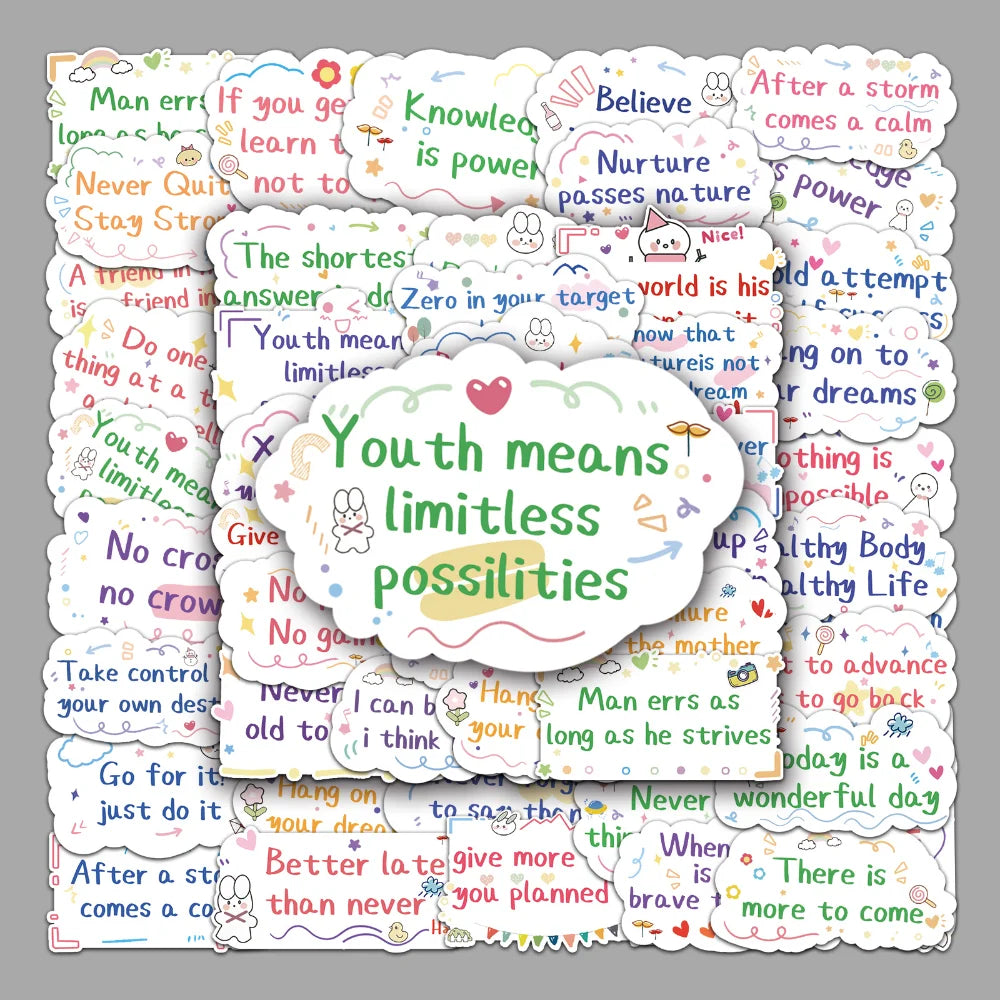 Man errs
long as he s
If you ge
learn t
not to
Knowled
is power
Believe
After a storm
comes a calm
Never Quit
Stay Stro
Nurture
passes nature
s power
A friend in
is friend in
The shortes
answer is do
Nice!
world is his
Zero in your target
old attempt
success
Do one
thing at a t
Youth mean
limitles
now that
ture is not
ream
ng on to
r dreams
Youth means
limitless
possilities
Youth mea
limitless
othing is
possible
ever
No cros
no crow
Give
up
althy Body
althy Life
No
No gain
lure
the mother
t to advance
to go back
Take control
your own dest
Never
old to
I can b
i think
Hang
your
Man errs as
long as he strives
oday is a
wonderful day
Go for it!
just do it
Hang on
your drea
to say then
Never
thin
After a sto
comes a ca
Better late
than never
give more
you planned
When
is
brave t
There is
more to come